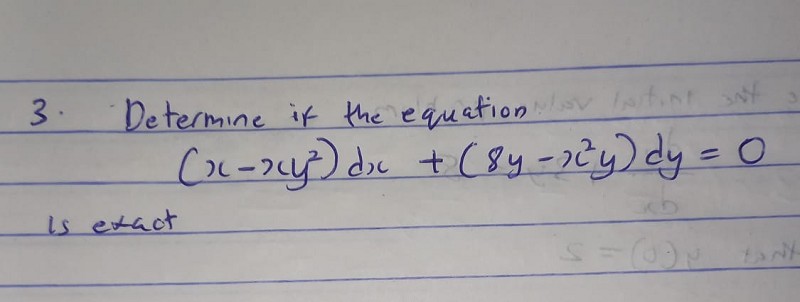 3. Determine if the equation
(x - xy²) dx + (8y - x²y) dy = 0
is exact